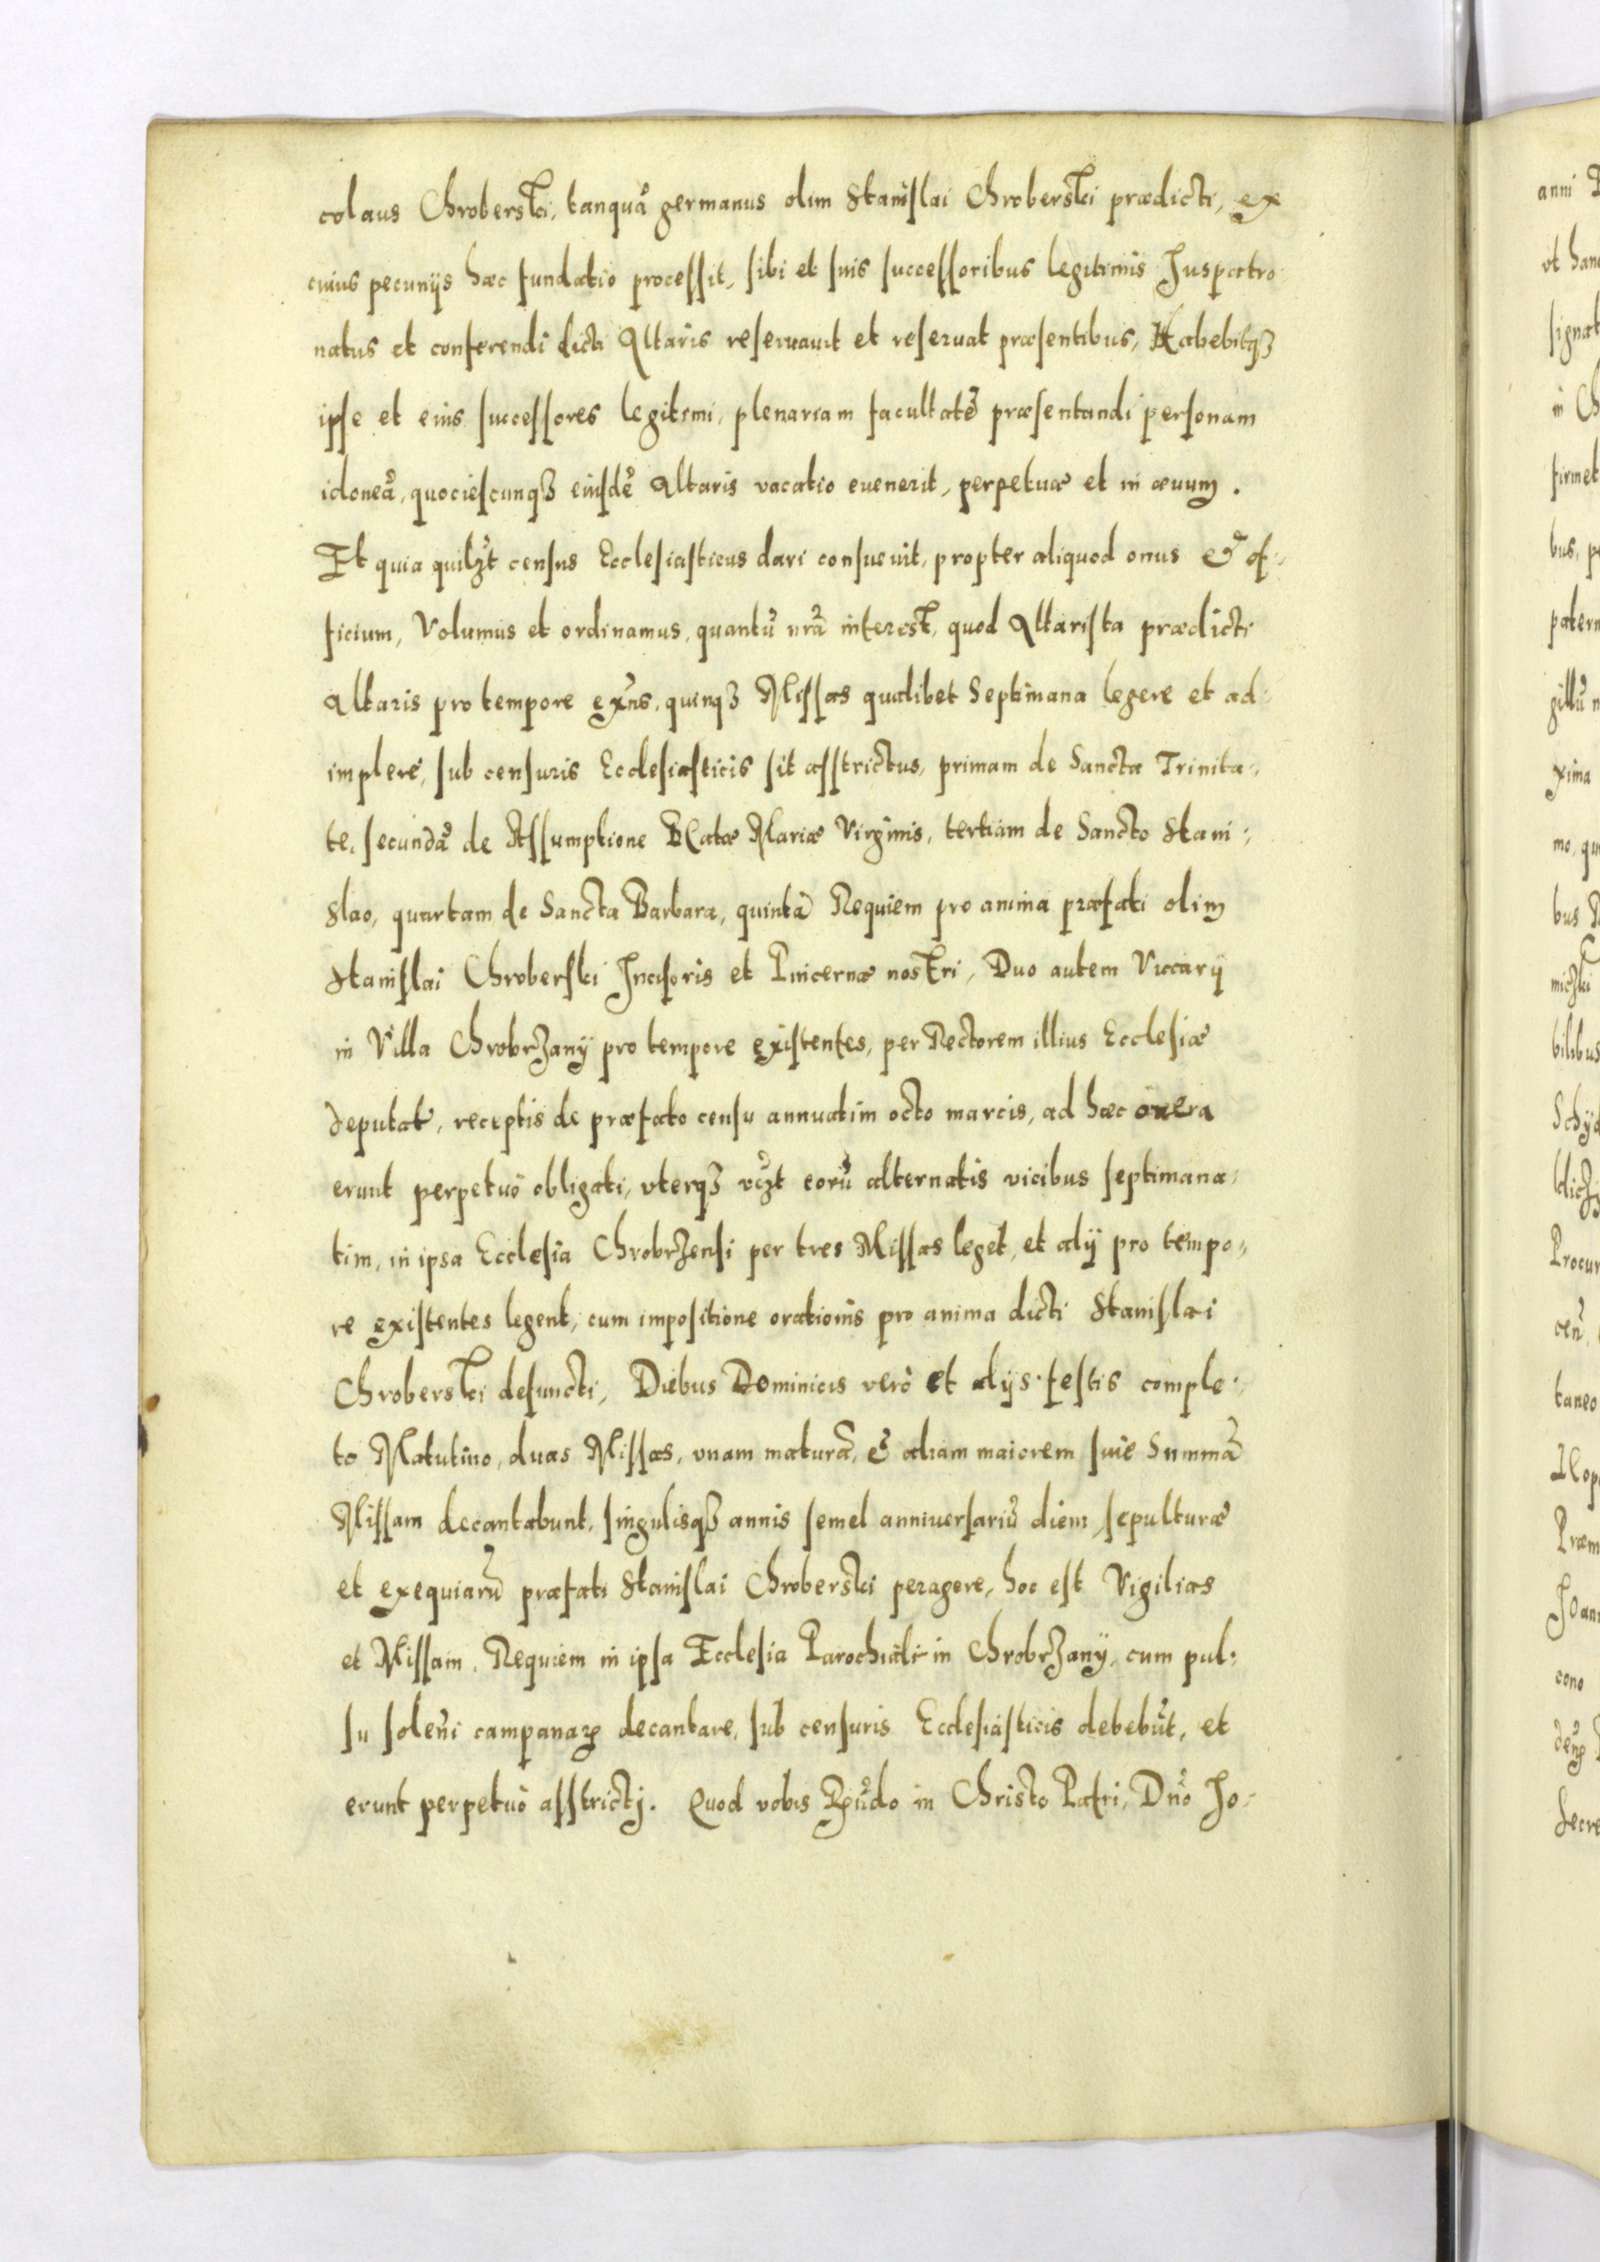 colaus Chroberski, tanquã germanus olim Stanislai Chroberski prædicti, ex
cuius pecunijs hæc fundatio processit, sibi et suis successoribus legitimis Juspatro
natus et conferendi dicti Altaris reseruauit et reseruat præsentibus, Habebitqȝ
ipse et eius successores legitimi, plenariam facultatẽ præsentandi personam
idoneã, quociescunqȝ eiusdẽ Altaris vacatio euenerit, perpetuæ et in æuum.
Et quia quilȝt census Ecclesiasticus dari consueuit, propter aliquod onus & of-
ficium, Volumus et ordinamus, quantũ nrã interest, quod Altarista prædicti
Altaris pro tempore exñs, quinqȝ Missas qualibet Septimana legere et ad-
implere, sub censuris Ecclesiasticis sit asstrictus, primam de Sancta Trinita-
te, secundã de Assumptione Beatæ Mariæ Virginis, tertiam de Sancto Stani-
slao, quartam de Sancta Barbara, quintã Requiem pro anima præfati olim
Stanislai Chroberski Incisoris et Pincernæ nostri, Duo autem Viccarij
in Villa Chrobrzany pro tempore existentes, per Rectorem illius Ecclesiæ
deputat, receptis de præfato censu annuatim octo marcis, ad hæc onera
erunt perpetuò obligati, vterqȝ vȝt eorũ alternatis vicibus septimana-
tim, in ipsa Ecclesia Chrobrzensi per tres Missas leget, et alij pro tempo-
re existentes legent, cum impositione orationis pro anima dicti Stanislai
Chroberski defuncti, Diebus Dominicis verò et alijs festis comple-
to Matutino, duas Missas, vnam maturã, & aliam maiorem siue Summã
Missam decantabunt, singulisqȝ annis semel anniuersariũ diem sepulturæ
et exequiarũ præfati Stanislai Chroberski peragere, hoc est Vigilias
et Missam, Requiem in ipsa Ecclesia Parochiali in Chrobrzany, cum pul-
su soleñi campanaꝝ decantare, sub censuris Ecclesiasticis debebũt, et
erunt perpetuò asstrictj. Quod vobis Rṽdo in Christo Patri, Dño Jo-